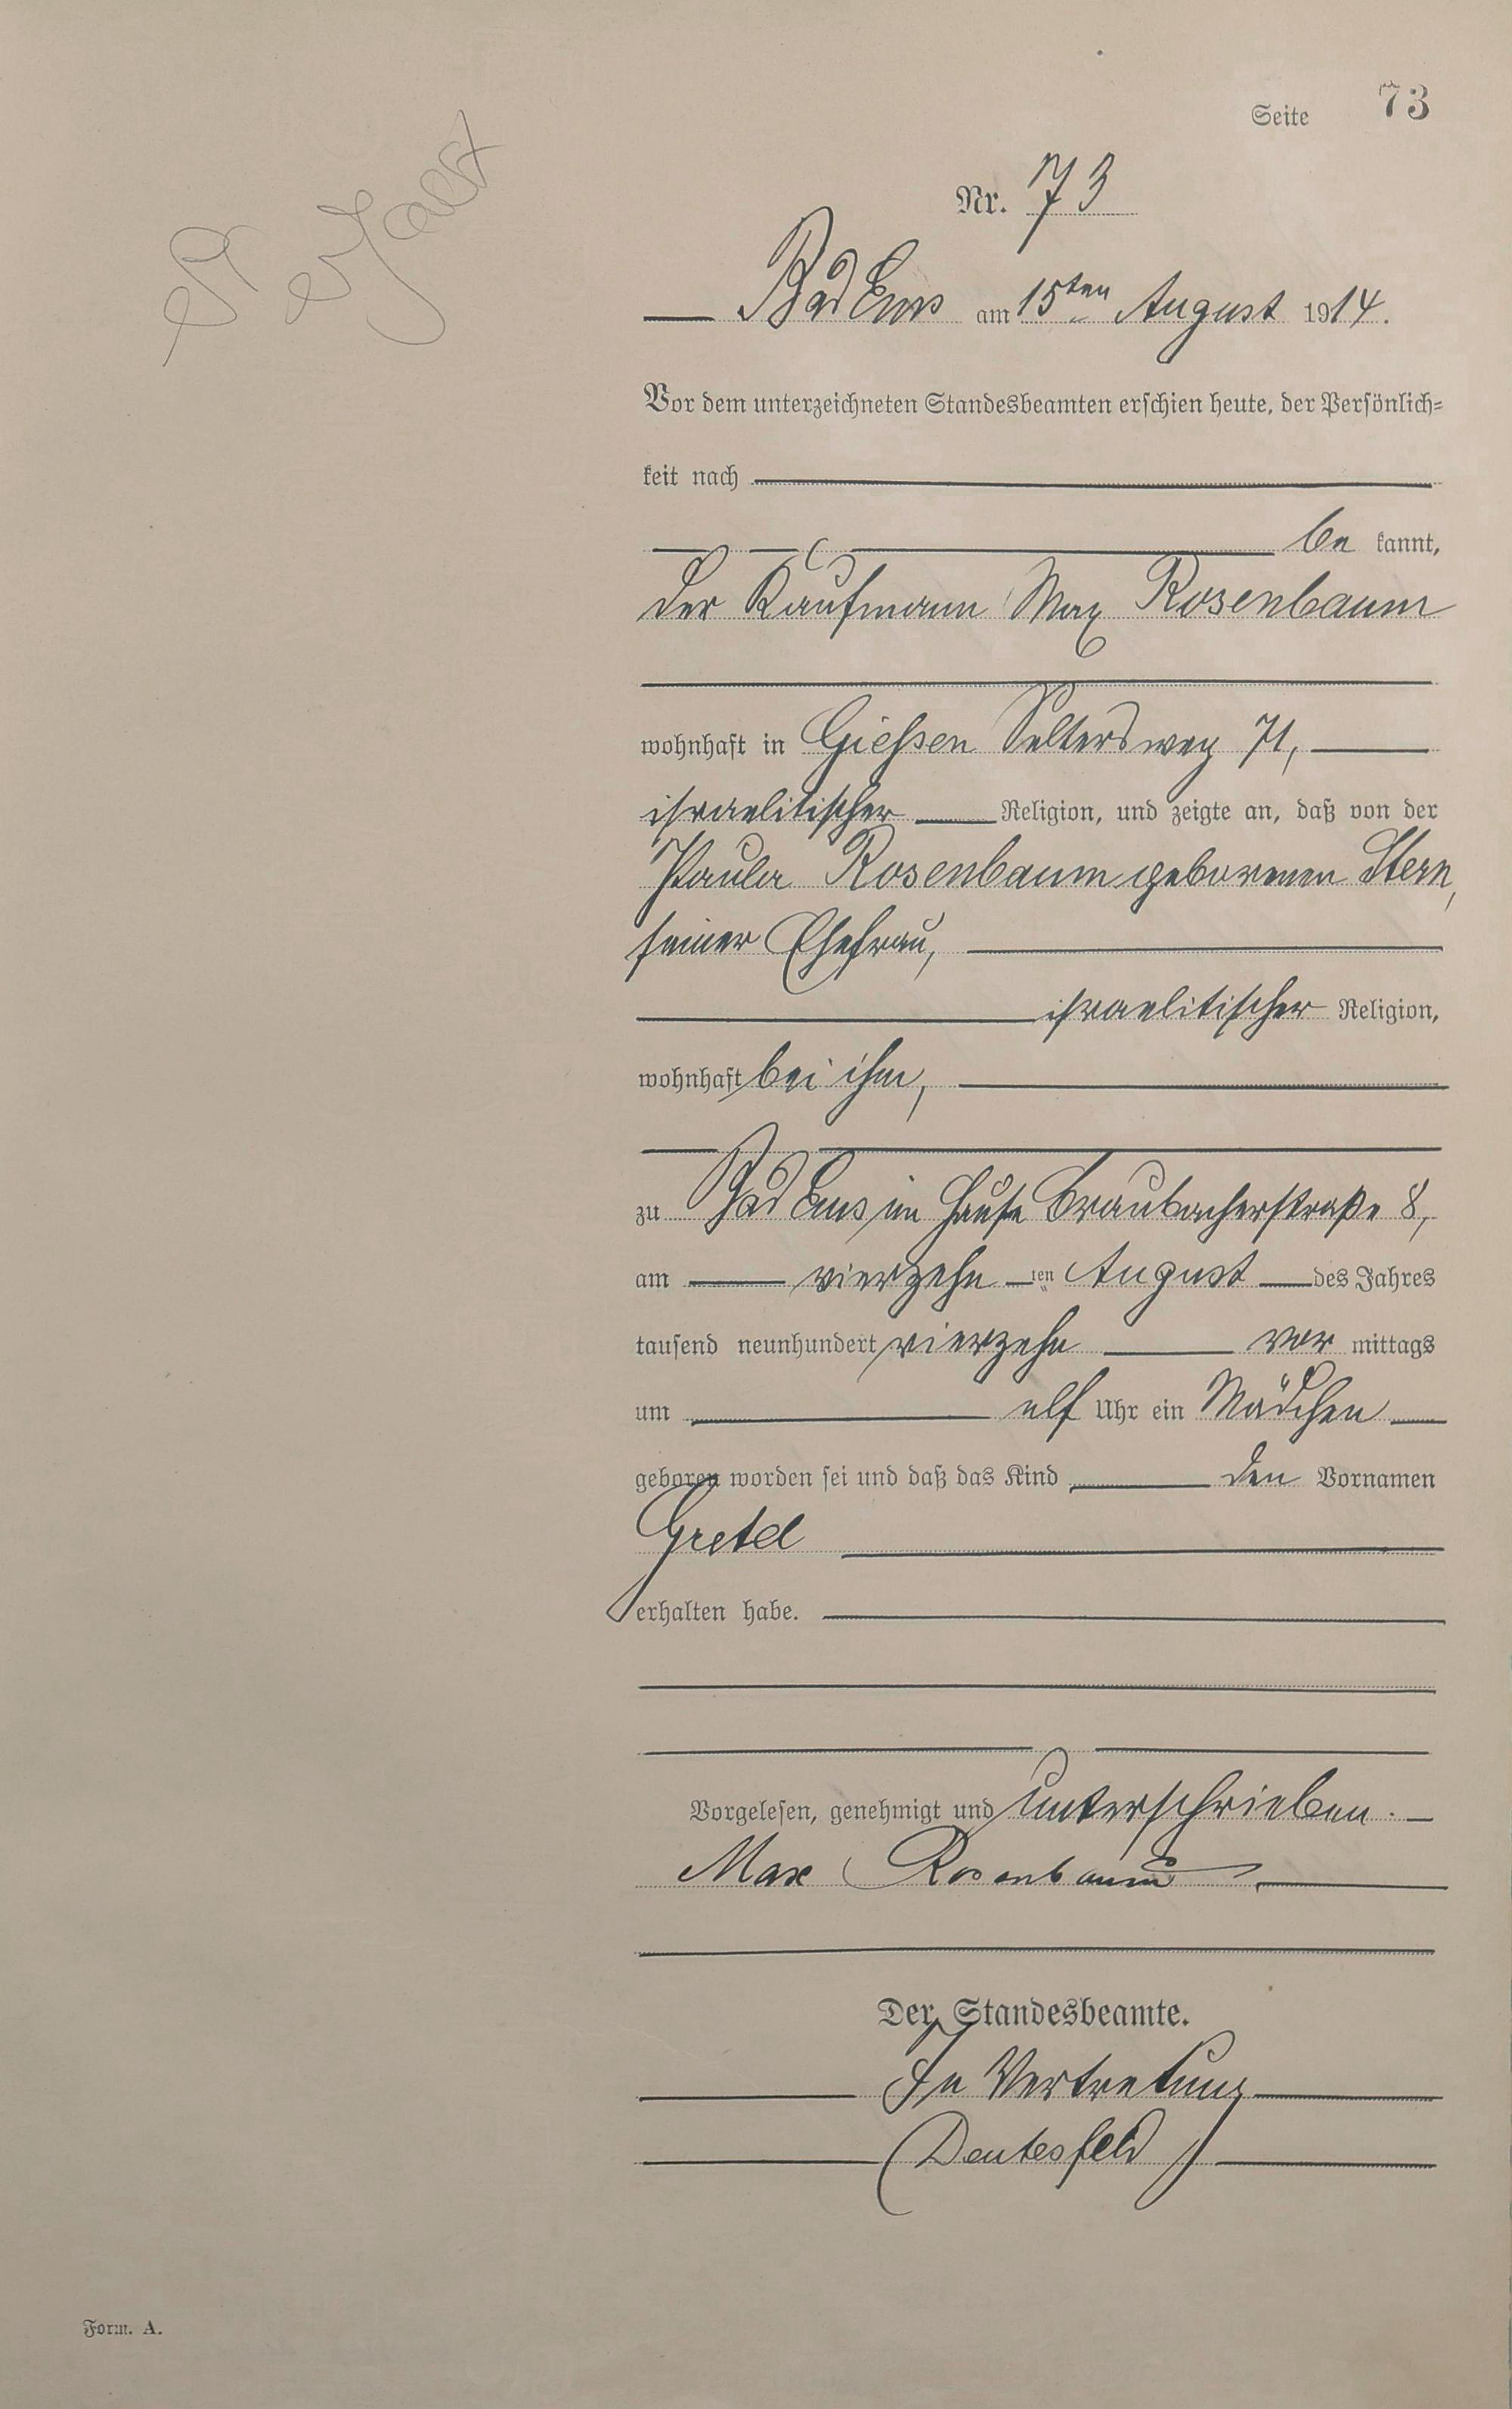 Seite 73
Nr. 73
Bad Ems am 15ten August 1914.
Vor dem unterzeichneten Standesbeamten erschien heute, der Persönlich=
keit nach
be kannt,
der Kaufmann Max Rosenbaum
wohnhaft in Giessen Seltersweg 71,
israelitischer Religion, und zeigte an, daß von der
Paula Rosenbaum geborenen Stern,
seiner Ehefrau,
israelitischer Religion,
wohnhaft bei ihm,
zu Bad Ems im Hause Braubacherstraße 8,
am vierzehn ten August des Jahres
tausend neunhundert vierzehn vor mittags
um elf Uhr ein Mädchen
geboren worden sei und daß das Kind den Vornamen
Gretel
erhalten habe.
Vorgelesen, genehmigt und unterschrieben.
Max Rosenbaum
Der Standesbeamte.
In Vertretung
(Deutesfeld)
Form. A.